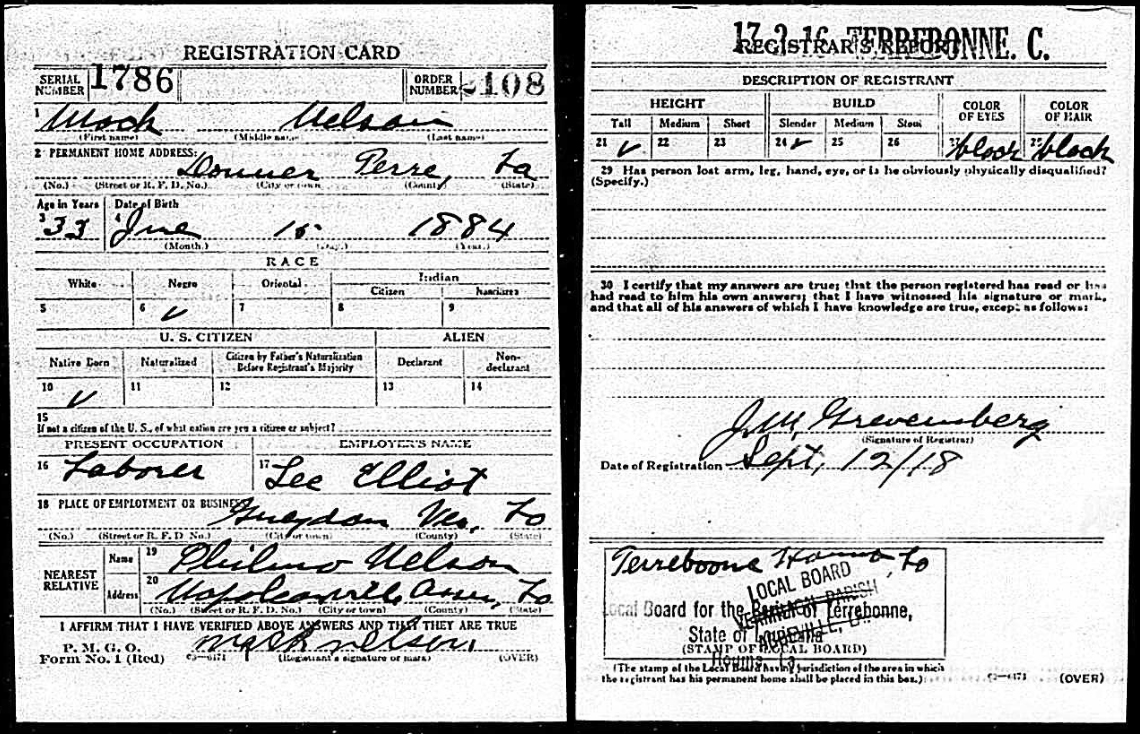 REGISTRATION CARD
SERIAL NUMBER 1786 ORDER NUMBER 2108
1 Mack Nelson
(First name) (Middle name) (Last name)
2 PERMANENT HOME ADDRESS: Donner Terre, La
(No.) (Street or R. F. D. No.) (City or town) (County) (State)
Age in Years Date of Birth
3 33 4 June 15 1884
(Month.) (Day.) (Year.)
RACE
White Negro Oriental Indian
Citizen Noncitizen
5 6 ✓ 7 8 9
U. S. CITIZEN ALIEN
Native Born Naturalized Citizen by Father's Naturalization Before Registrant's Majority Declarant Non-declarant
10 ✓ 11 12 13 14
15
If not a citizen of the U. S., of what nation are you a citizen or subject?
PRESENT OCCUPATION EMPLOYER'S NAME
16 Laborer 17 Lee Elliot
18 PLACE OF EMPLOYMENT OR BUSINESS: Gueydan Ver, La
(No.) (Street or R. F. D. No.) (City or town) (County) (State)
NEAREST RELATIVE
Name 19 Nelson
Address 20 Napoleonville Assu, La
(No.) (Street or R. F. D. No.) (City or town) (County) (State)
I AFFIRM THAT I HAVE VERIFIED ABOVE ANSWERS AND THAT THEY ARE TRUE
P. M. G. O.
Form No. 1 (Red) 03—6171 mack nelson (Registrant's signature or mark) (OVER)
17-3-16 TERREBONNE. C.
REGISTRAR'S REPORT
DESCRIPTION OF REGISTRANT
HEIGHT BUILD COLOR OF EYES COLOR OF HAIR
Tall Medium Short Slender Medium Stout
21 ✓ 22 23 24 ✓ 25 26 27 black 28 black
29 Has person lost arm, leg, hand, eye, or is he obviously physically disqualified?
(Specify.)
30 I certify that my answers are true; that the person registered has read or has
had read to him his own answers; that I have witnessed his signature or mark,
and that all of his answers of which I have knowledge are true, except as follows:
J. M. Grevemberg
(Signature of Registrar)
Date of Registration Sept, 12/18
Terrebonne Houma, La
LOCAL BOARD
VERMILION PARISH
ABBEVILLE, LA
Local Board for the Parish of Terrebonne,
State of Louisiana
(STAMP OF LOCAL BOARD)
Houma, La.
(The stamp of the Local Board having jurisdiction of the area in which
the registrant has his permanent home shall be placed in this box.) 03—6171 (OVER)